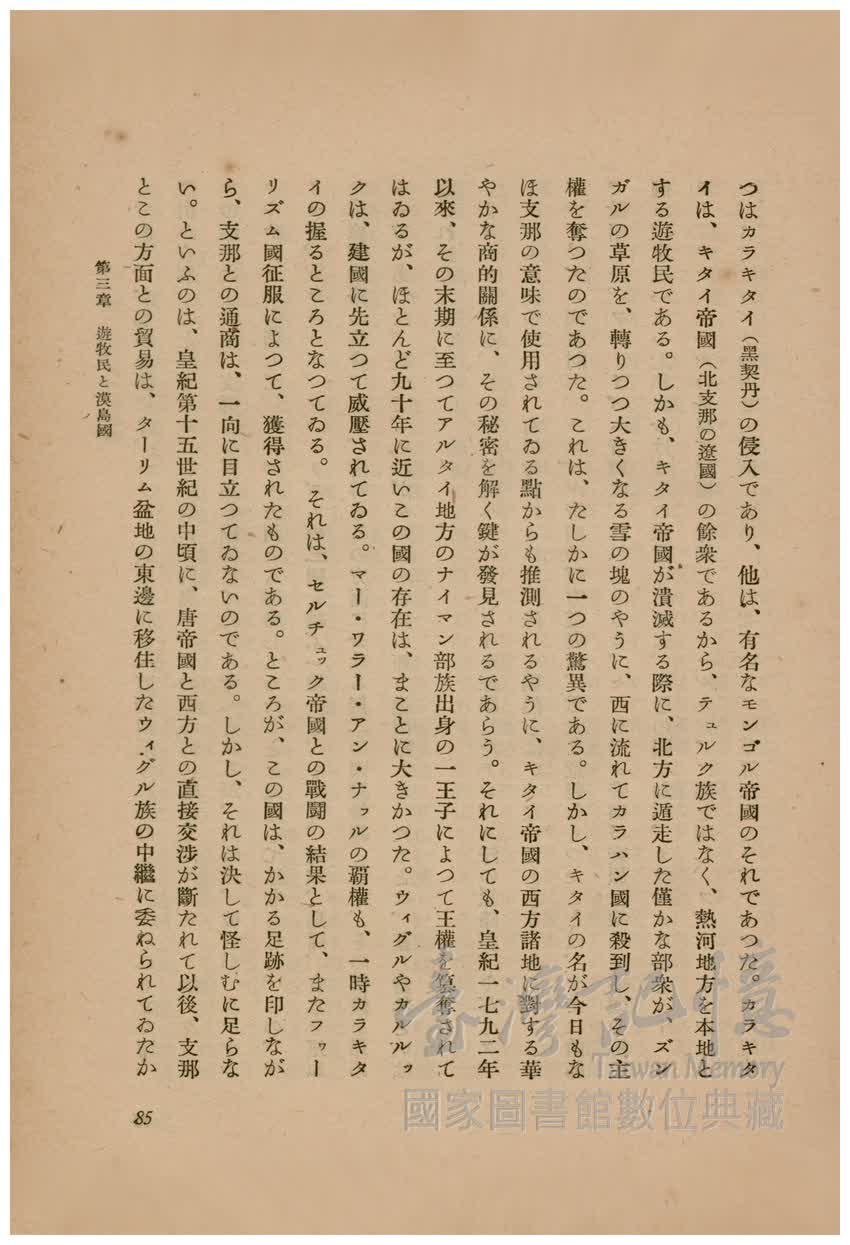 つはカラキタイ（黑契丹）の侵入であり、他は、有名なモンゴル帝國のそれであつた。カラキタ
イは、キタイ帝國（北支那の遼國）の餘衆であるから、テュルク族ではなく、熱河地方を本地と
する遊牧民である。しかも、キタイ帝國が潰滅する際に、北方に遁走した僅かな部衆が、ズン
ガルの草原を、轉りつつ大きくなる雪の塊のやうに、西に流れてカラハン國に殺到し、その主
權を奪つたのであつた。これは、たしかに一つの驚異である。しかし、キタイの名が今日もな
ほ支那の意味で使用されてゐる點からも推測されるやうに、キタイ帝國の西方諸地に對する華
やかな商的關係に、その秘密を解く鍵が發見されるであらう。それにしても、皇紀一七九二年
以來、その末期に至つてアルタイ地方のナイマン部族出身の一王子によつて王權を簒奪されて
はゐるが、ほとんど九十年に近いこの國の存在は、まことに大きかつた。ウィグルやカルルッ
クは、建國に先立つて威壓されてゐる。マー・ワラー・アン・ナㇵルの覇權も、一時カラキタ
イの握るところとなつてゐる。それは、セルチュック帝國との戰鬪の結果として、またフヮー
リズム國征服によつて、獲得されたものである。ところが、この國は、かかる足跡を印しなが
ら、支那との通商は、一向に目立つてゐないのである。しかし、それは決して怪しむに足らな
い。といふのは、皇紀第十五世紀の中頃に、唐帝國と西方との直接交渉が斷たれて以後、支那
とこの方面との貿易は、ターリム盆地の東邊に移住したウィグル族の中繼に委ねられてゐたか
第三章　遊牧民と漠島國
85
臺灣記憶
Taiwan Memory
國家圖書館數位典藏